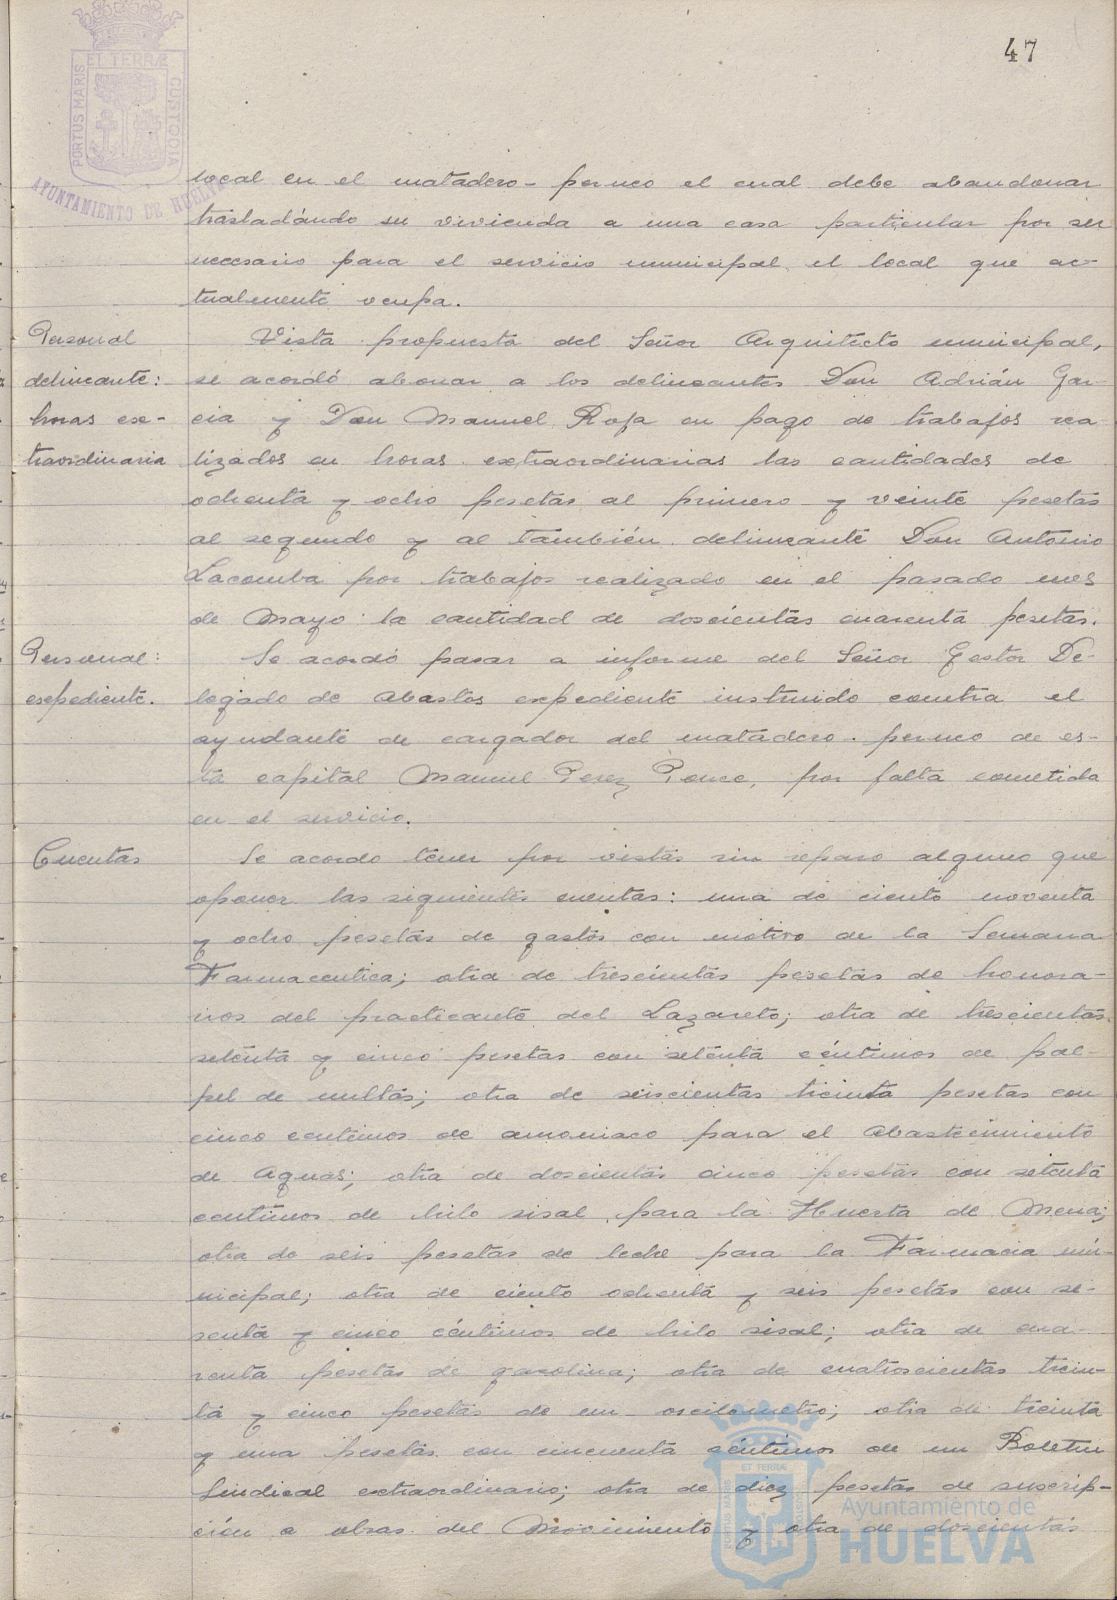 47
PORTUS MARIS ET TERRÆ CUSTODIA
AYUNTAMIENTO DE HUELVA
local en el matadero-porcuno el cual debe abandonar
trasladándo su vivienda a una casa particular por ser
necesario para el servicio municipal el local que ac-
tualmente ocupa.
Personal
delineante:
horas ex-
traordinaria
Vista propuesta del Señor Arquitecto municipal,
se acordó abonar a los delineantes Don Adrián Gar-
cia y Don Manuel Rofa en pago de trabajos rea-
lizados en horas extraordinarias las cantidades de
ochenta y ocho pesetas al primero y veinte pesetas
al segundo y al también delineante Don Antonio
Lacomba por trabajos realizado en el pasado mes
de Mayo la cantidad de doscientas cuarenta pesetas.
Personal:
expediente.
Se acordó pasar a informe del Señor Gestor De-
legado de Abastos expediente instruido contra el
ayudante de cargador del matadero porcuno de es-
ta capital Manuel Perez Ponce, por falta cometida
en el servicio.
Cuentas
Se acordo tener por vistas sin reparo alguno que
oponer las siguientes cuentas: una de ciento noventa
y ocho pesetas de gastos con motivo de la Semana
Farmaceutica; otra de trescientas pesetas de honora-
rios del practicante del Lazareto; otra de trescientas
setenta y cinco pesetas con setenta céntimos de pa-
pel de multas; otra de seiscientas treinta pesetas con
cinco centimos de amoniaco para el Abastecimiento
de Aguas; otra de doscientas cinco pesetas con setenta
centimos de hilo sisal para la Huerta de Mena;
otra de seis pesetas de leche para la Farmacia mu-
nicipal; otra de ciento ochenta y seis pesetas con se-
senta y cinco céntimos de hilo sisal; otra de cua-
renta pesetas de gasolina; otra de cuatrocientas trein-
ta y cinco pesetas de un oscilometro; otra de treinta
y una pesetas con cincuenta céntimos de un Boletin
Sindical extraordinario; otra de diez pesetas de suscrip-
ción a obras del Movimiento y otra de doscientas
Ayuntamiento de
HUELVA